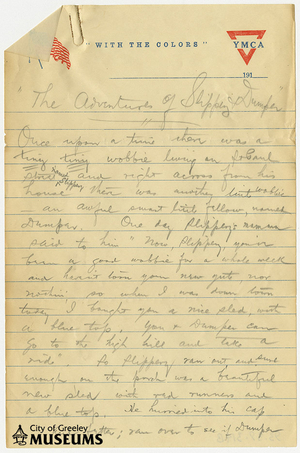 "WITH THE COLORS"
YMCA
191
"The Adventures of Slippery & Dumper"
Once upon a time there was a
tiny tiny wobbie living on St Paul
street and right across from his
named Slippery
house there was another little wobbie
an awful smart little fellow, named
Dumper. One day Slippery's mamma
said to him "Now, Slippery, you've
been a good wobbie for a whole week
and haven't torn your new suit, nor
nothin' so when I was down town
today I bought you a nice sled with
a blue top, you & Dumper can
go to the high hill and take a
ride" So Slippery ran out and sure
enough on the porch was a beautiful
new sled with red runners and
a blue top. He hurried into his cap
ran over to see if Dumper
City of Greeley
MUSEUMS